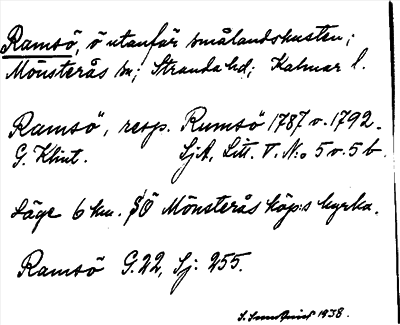 Ramsö, ö utanför smålandskusten;
Mönsterås sn; Stranda hd; Kalmar l.
Ramsö, resp. Rumsö 1787 o. 1792.
G. Klint. SjA, Litt. V. N:o 5 o. 5 b.
Läge 6 km. SÖ Mönsterås köp:s kyrka.
Ramsö G.22, Sj: 255.
1938.